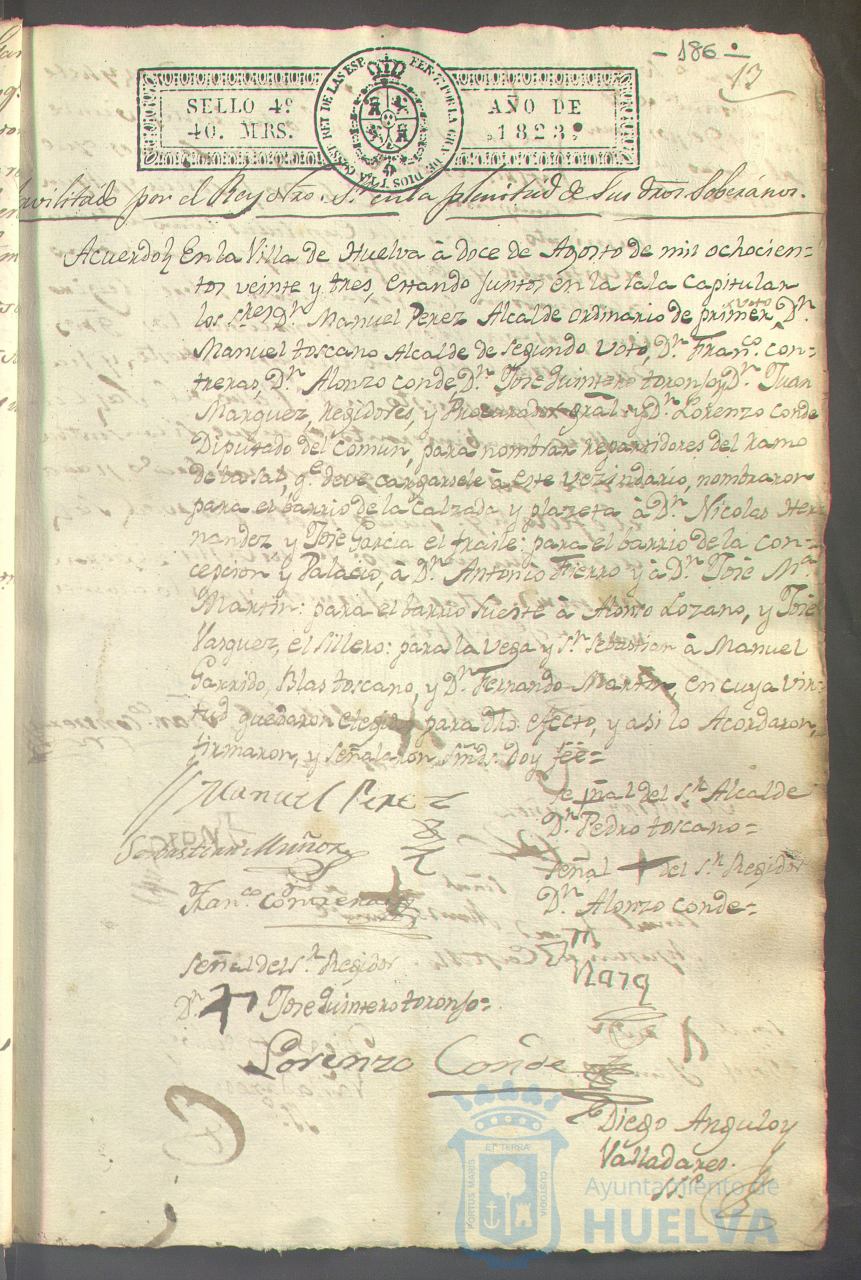 - 186 -
13
SELLO 4º
40. MRS.
FER. 7. POR LA GRA. DE DIOS REI DE LAS ESP.
AÑO DE
1823.
avilitado por el Rey Ntro. Sr. en la plenitud de sus dros. Soberanos.
Acuerdo En la Villa de Huelva à doce de Agosto de mil ochocien=
tos veinte y tres, estando juntos en la Sala Capitular
los Sres. Dn. Manuel Perez Alcalde ordinario de primer voto, Dn.
Manuel toscano Alcalde de Segundo voto, Dn. Franco. con=
treras, Dn. Alonzo conde, Dn. Jose Quintero toronjo y Dn. Juan
Marquez, Regidores, y Procurador gral. y Dn. Lorenzo Conde
Diputado del comun, para nombrar repartidores del ramo
de qe. deve cargarsele à este vezindario, nombraron
para el barrio de la calzada y plazeta à Dn. Nicolas Her
nandez y Jose Garcia el fraile: para el barrio de la Con=
cepcion y Palacio, à Dn. Antonio Fierro y à Dn. Jose Ma.
Martin: para el barrio fuente à Alonso Lozano, y Jose
Vasquez, el Sillero: para la Vega y Sn. Sebastian à Manuel
Garrido, Blas toscano, y Dn. Fernando Martin, en cuya vir=
tud quedaron elegidos para dho. efecto, y asi lo Acordaron,
firmaron, y señalaron Smds. doy fée=
Manuel Perez
Señal del Sr. Alcalde
Dn. Pedro toscano=
Sebastian Muñoz
Señal del Sr. Regidor
Dn. Alonzo conde=
Franco. Contreras
Señal del Sr. Regidor
Dn. Jose Quintero toronjo=
Marq
Lorenzo Conde
Diego Angulo y
Valladares.
PORTUS MARIS
ET TERRA
CUSTODIA
Ayuntamiento de
HUELVA